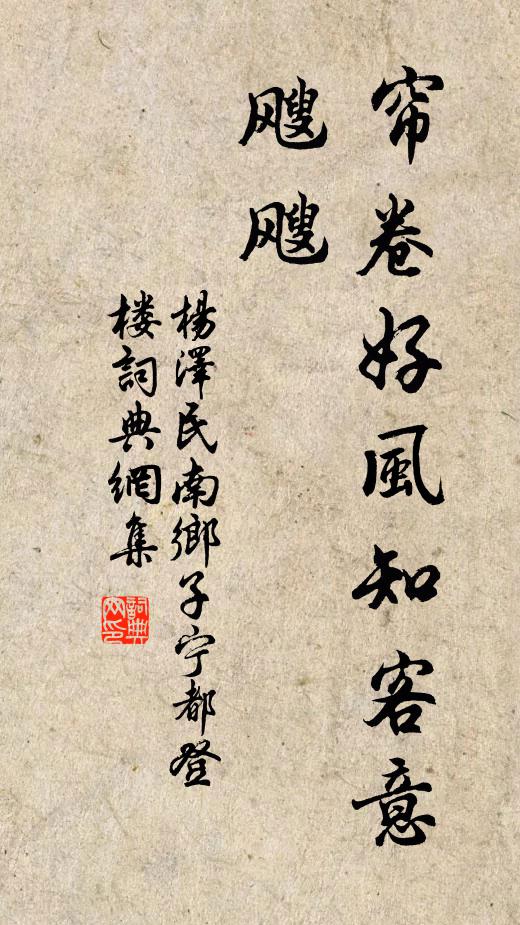 帘卷好風知客意
飕飕
楊澤民南鄉子宁都登
楼詞典網集
詞典
网印